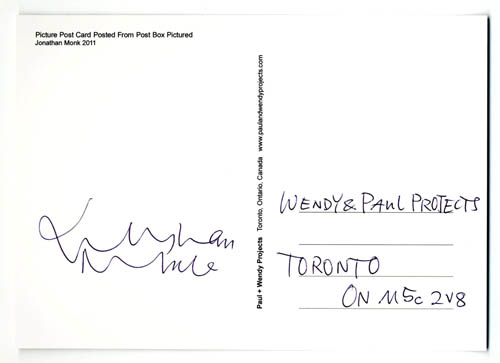 Picture Post Card Posted From Post Box Pictured
Jonathan Monk 2011
Jonathan
Monk
Paul + Wendy Projects Toronto, Ontario, Canada www.paulandwendyprojects.com
WENDY & PAUL PROJECTS
TORONTO
ON M5C 2V8